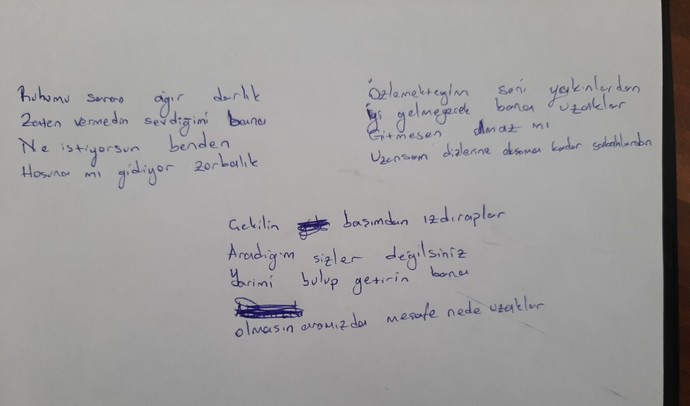 Ruhumu saran ağır darlık
Zaten vermedin sevdiğimi bana
Ne istiyorsun benden
Hoşuna mı gidiyor zorbalık
Özlemekteyim seni yakınlardan
İyi gelmeyecek bana uzaklar
Gitmesen olmaz mı
Uzansam dizlerine akşama kadar sabahlardan
Çekilin başımdan ızdıraplar
Aradığım sizler değilsiniz
Yarimi bulup getirin bana
olmasın aramızda mesafe nede uzaklar